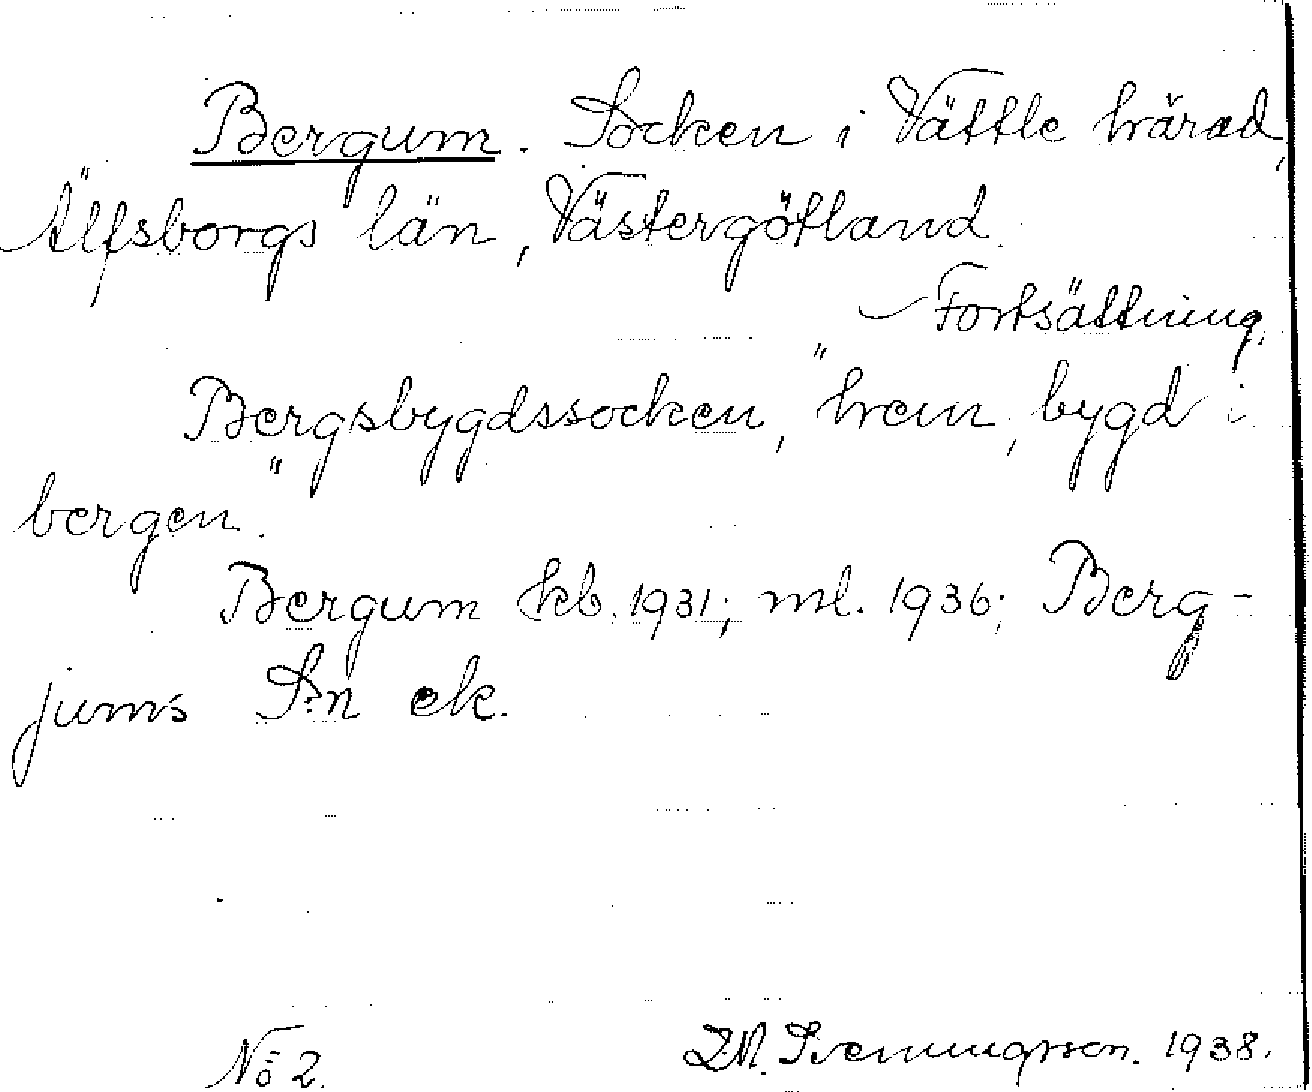 Bergum. Socken i Vättle härad,
Älfsborgs län, Västergötland.
Fortsättning.
Bergsbygdssocken, "hem, bygd i
bergen."
Bergum kb. 1931; ml. 1936; Berg-
jums S:n ek.
No 2. Svenningsson. 1938.